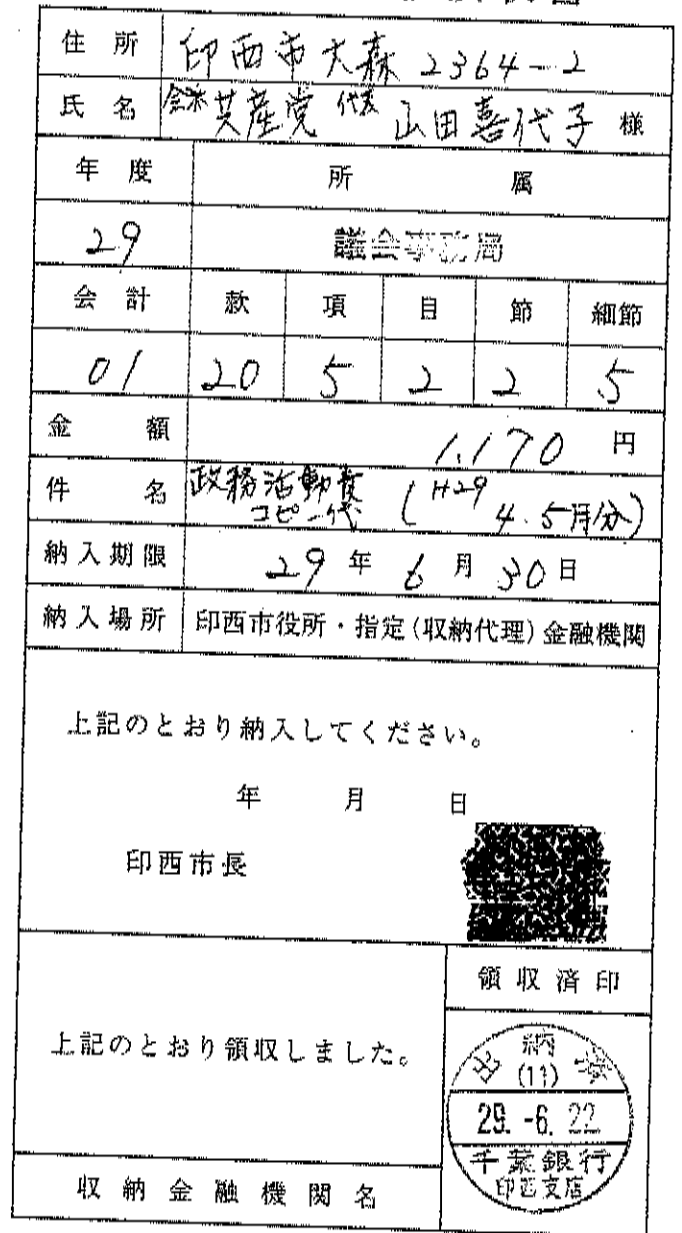 住所 印西市大森2364-2
氏名 共産党 代表 山田喜代子 様
年度 所属
29 議会事務局
会計 款 項 目 節 細節
01 20 5 2 2 5
金額 1,170 円
件名 政務活動費
コピー代 (H29 4.5月分)
納入期限 29年6月30日
納入場所 印西市役所・指定(収納代理)金融機関
上記のとおり納入してください。
年 月 日
印西市長
領収済印
上記のとおり領収しました。
納
(11)
29.-6.22
千葉銀行
印西支店
収納金融機関名